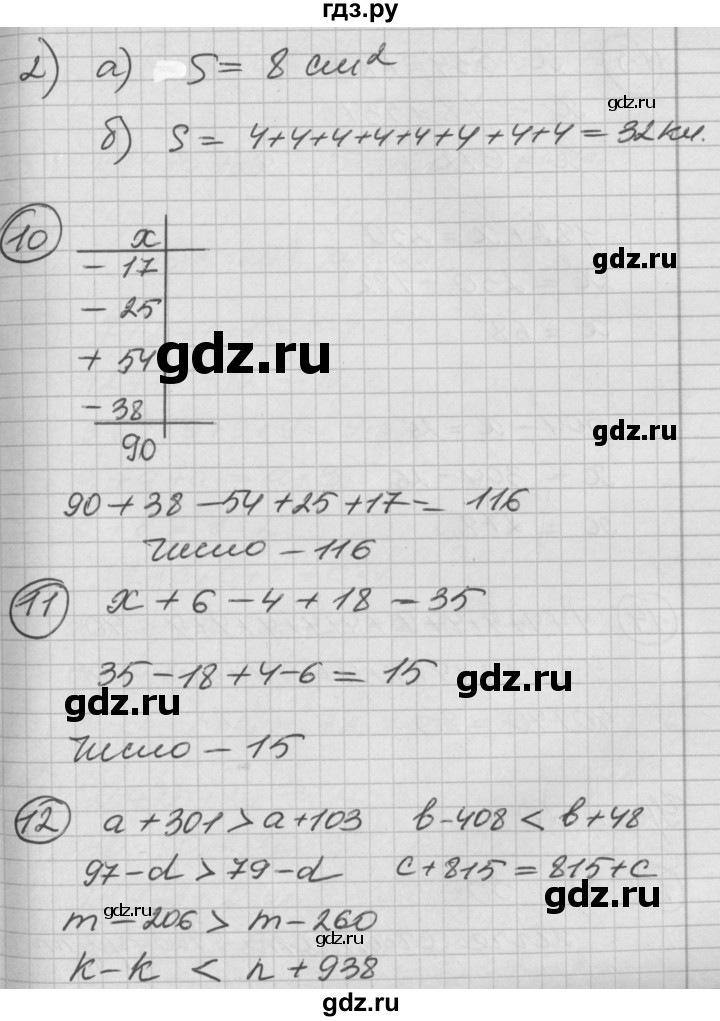 гдз.ру
2) а) S = 8 см²
gdz.ru
б) S = 4+4+4+4+4+4+4+4 = 32 км.
10
x
gdz.ru
- 17
- 25
gdz.ru
+ 54
- 38
gdz.ru
90
90 + 38 - 54 + 25 + 17 = 116
Число - 116
11 x + 6 - 4 + 18 - 35
35 - 18 + 4 - 6 = 15
gdz.ru
gdz.ru
Число - 15
12 a + 301 > a + 103 b - 408 < b + 48
97 - d > 79 - d c + 815 = 815 + c
gdz.ru
gdz.ru
m - 206 > m - 260
gdz.ru
k - k < n + 938
gdz.ru